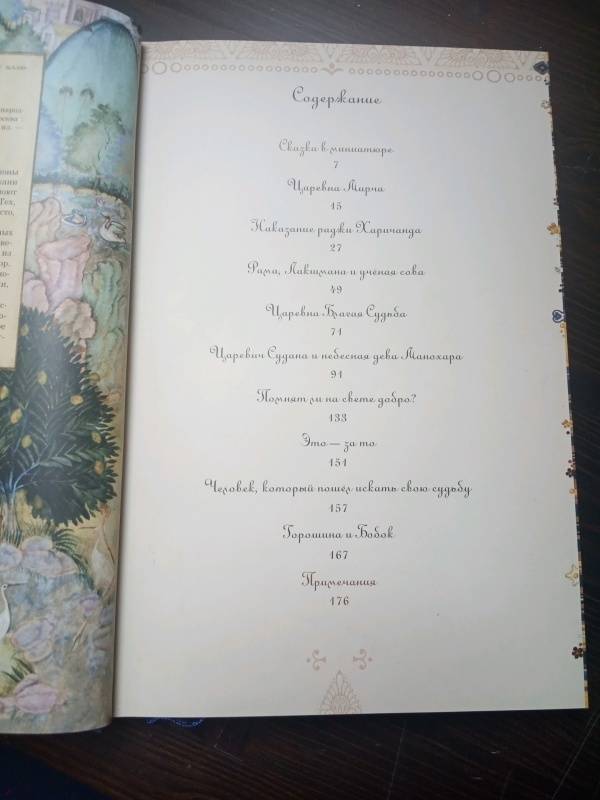 Содержание
Сказки в миниатюре
7
Царевна Мирча
15
Наказание раджи Харичанда
27
Рама, Лакшмана и учёная сова
49
Царевна Благая Судьба
71
Царевич Судана и небесная дева Манохара
91
Помнят ли на свете добро?
133
Это — за то
151
Человек, который пошёл искать свою судьбу
157
Горошина и Бобок
167
Примечания
176